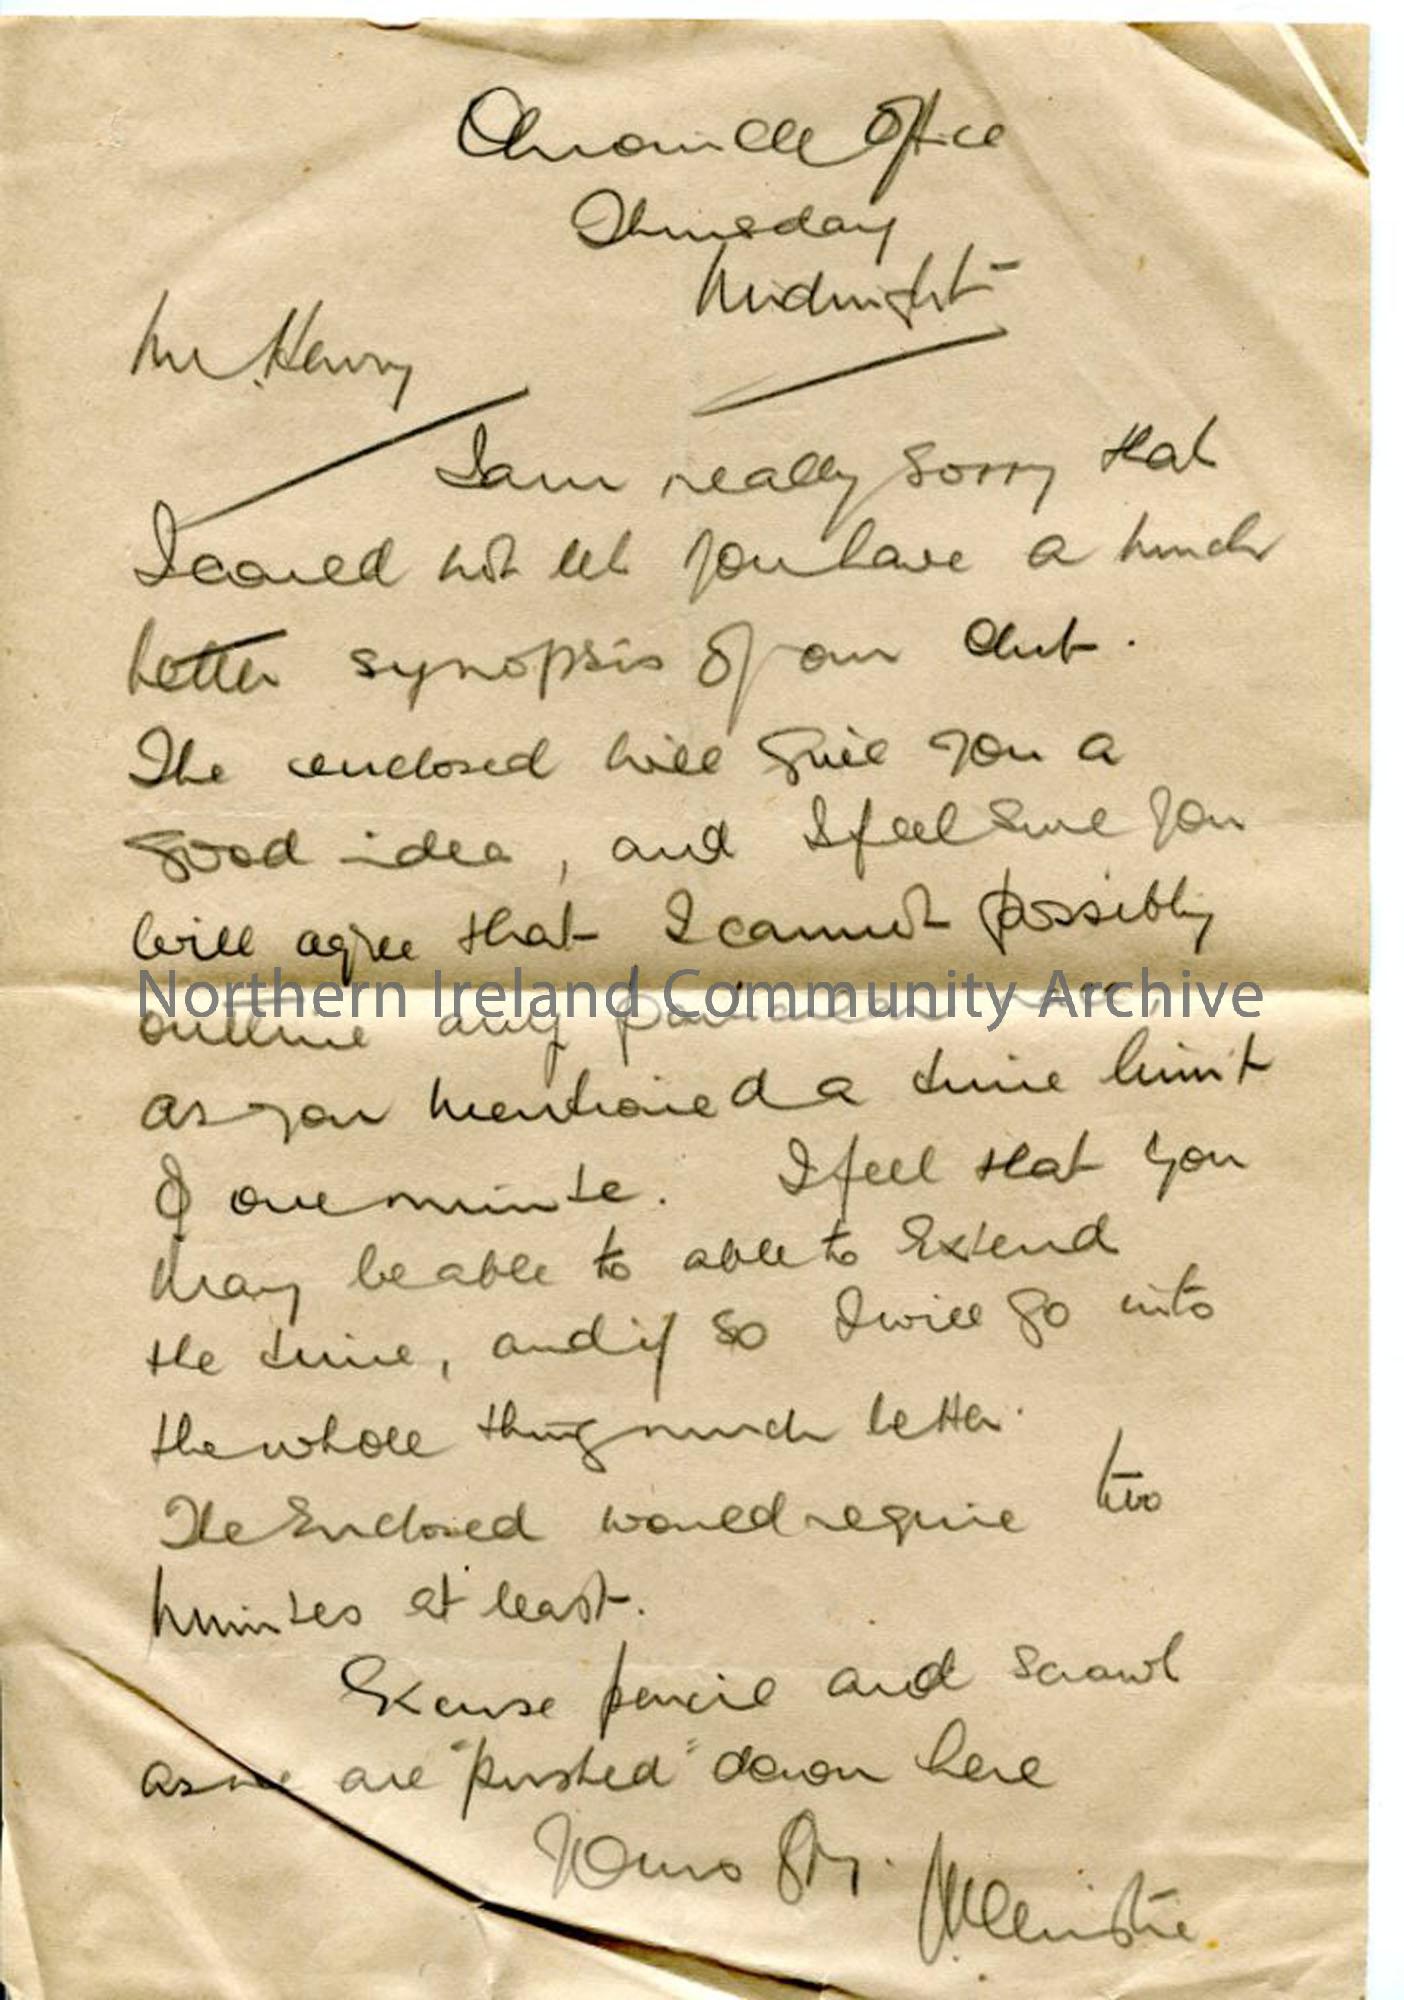 Chronicle Office
Thursday
Midnight
Mr Henry
I am really sorry that
I could not let you have a much
better synopsis of our Club.
The enclosed will give you a
good idea, and I feel sure you
will agree that I cannot possibly
Northern Ireland Community Archive
outline any
as you mentioned a time limit
of one minute. I feel that you
may be able to able to extend
the time, and if so I will go into
the whole thing much better.
The Enclosed would require two
minutes at least.
Excuse pencil and scrawl
as we are "pushed" down here
Yours
Christie